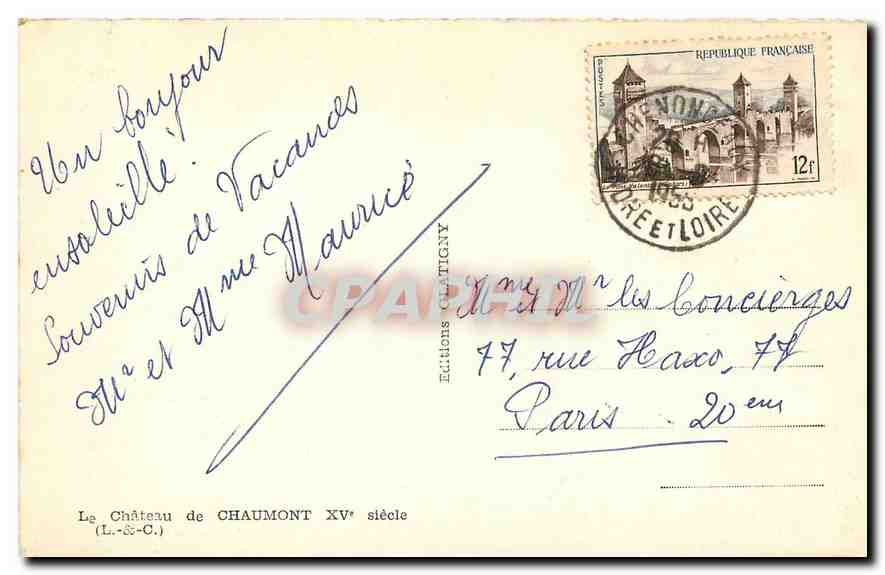 Un bonjour
ensoleillé!
Souvenirs de Vacances
Mr et Mme Maurice
Editions GLATIGNY
REPUBLIQUE FRANÇAISE
POSTES
12f
CHENONC
1955
INDRE ET LOIRE
CPARPHIL
Mme et Mr les Concierges
77, rue Haxo, 77
Paris 20eme
Le Château de CHAUMONT XVe siècle
(L.-&-C.)